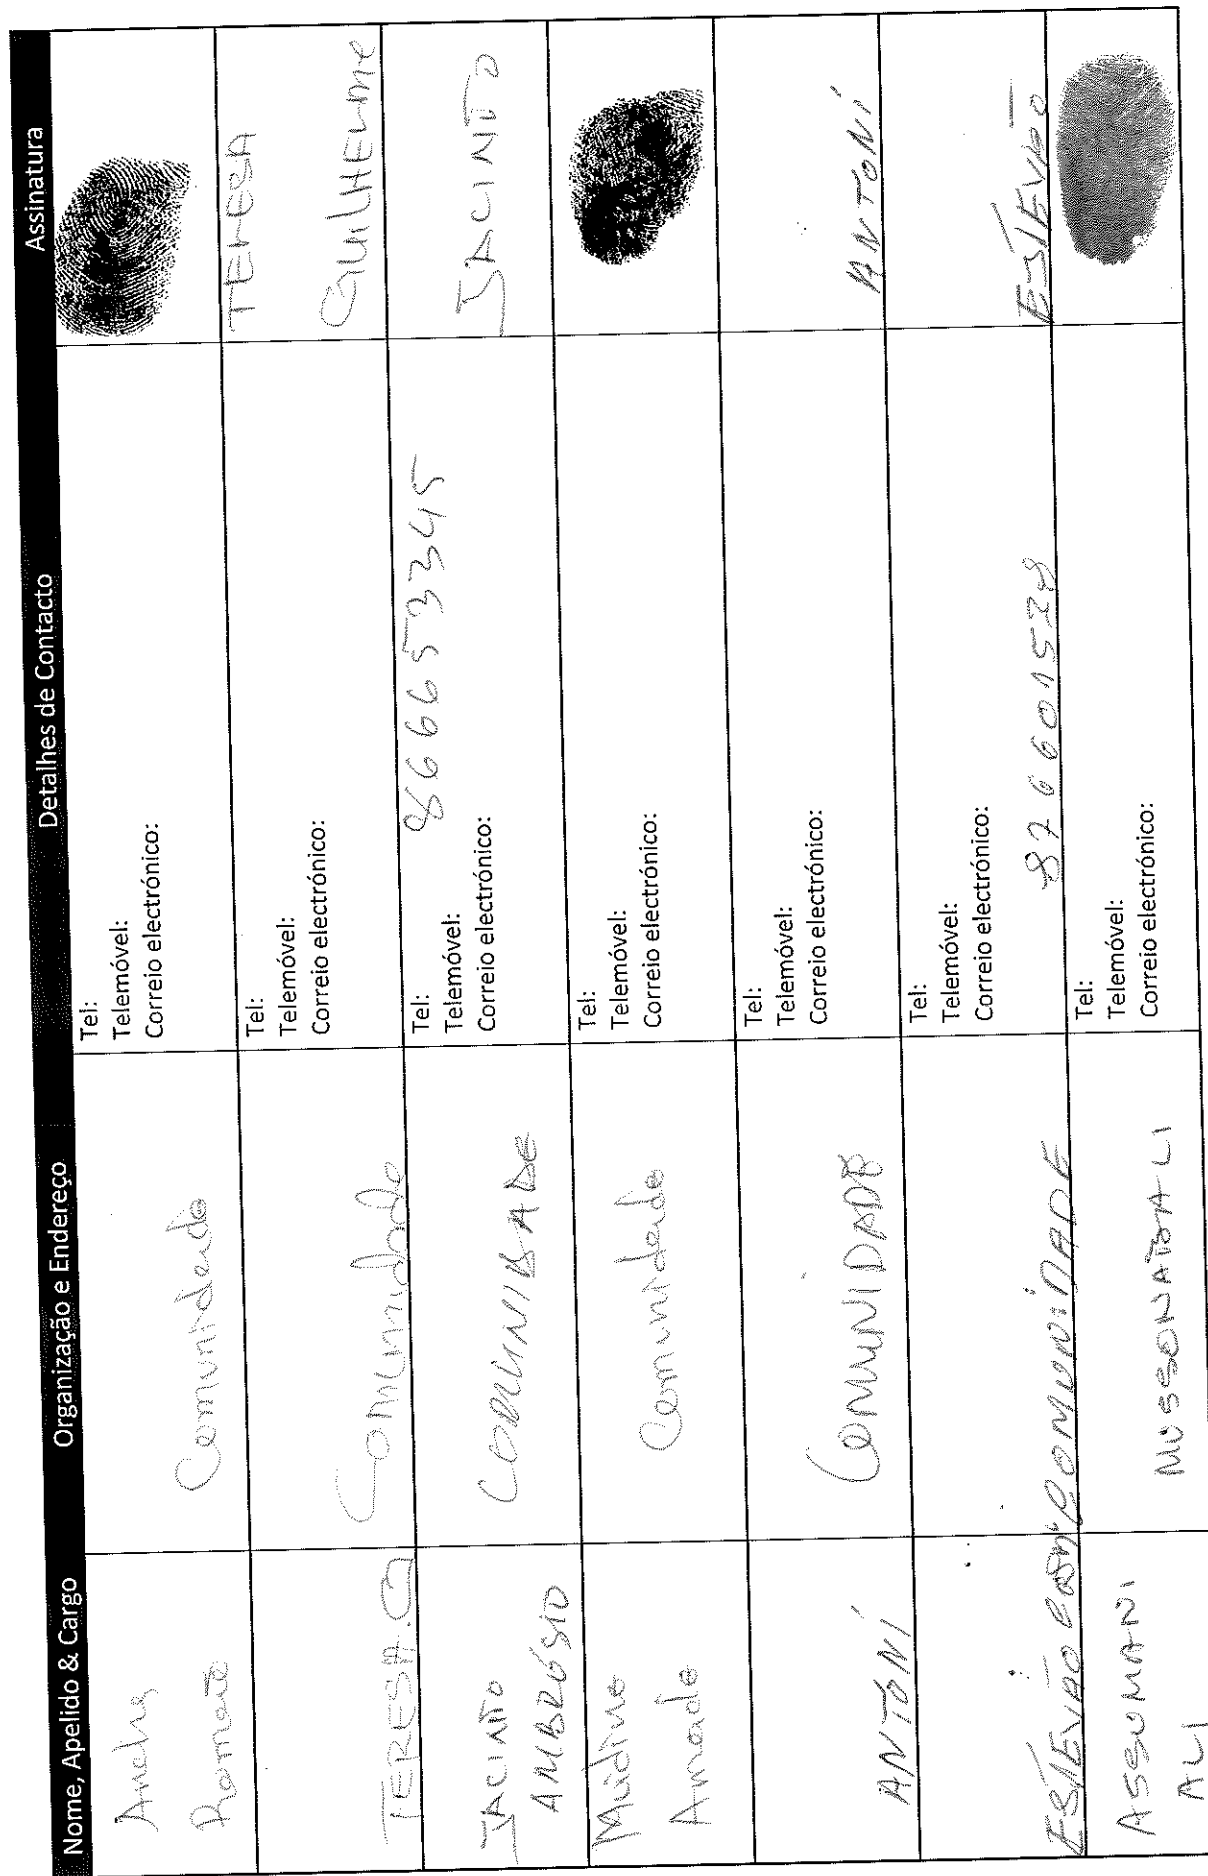 Nome, Apelido & Cargo Organização e Endereço Detalhes de Contacto Assinatura
Andre
Romão
Comunidade
Tel:
Telemóvel:
Correio electrónico:
TERESA.G
Comunidade
Tel:
Telemóvel:
Correio electrónico:
TERESA
GUILHERME
JACINTO
AMBRÓSIO
COMUNIDADE
Tel: 866653345
Telemóvel:
Correio electrónico:
JACINTO
Muidine
Amade
Comunidade
Tel:
Telemóvel:
Correio electrónico:
ANTONI
COMUNIDADE
Tel:
Telemóvel:
Correio electrónico:
ANTONI
ESTEVÃO
COMUNIDADE
Tel:
Telemóvel:
Correio electrónico:
876601528
ESTEVÃO
ASSUMANI
ALI
Tel:
Telemóvel:
Correio electrónico: